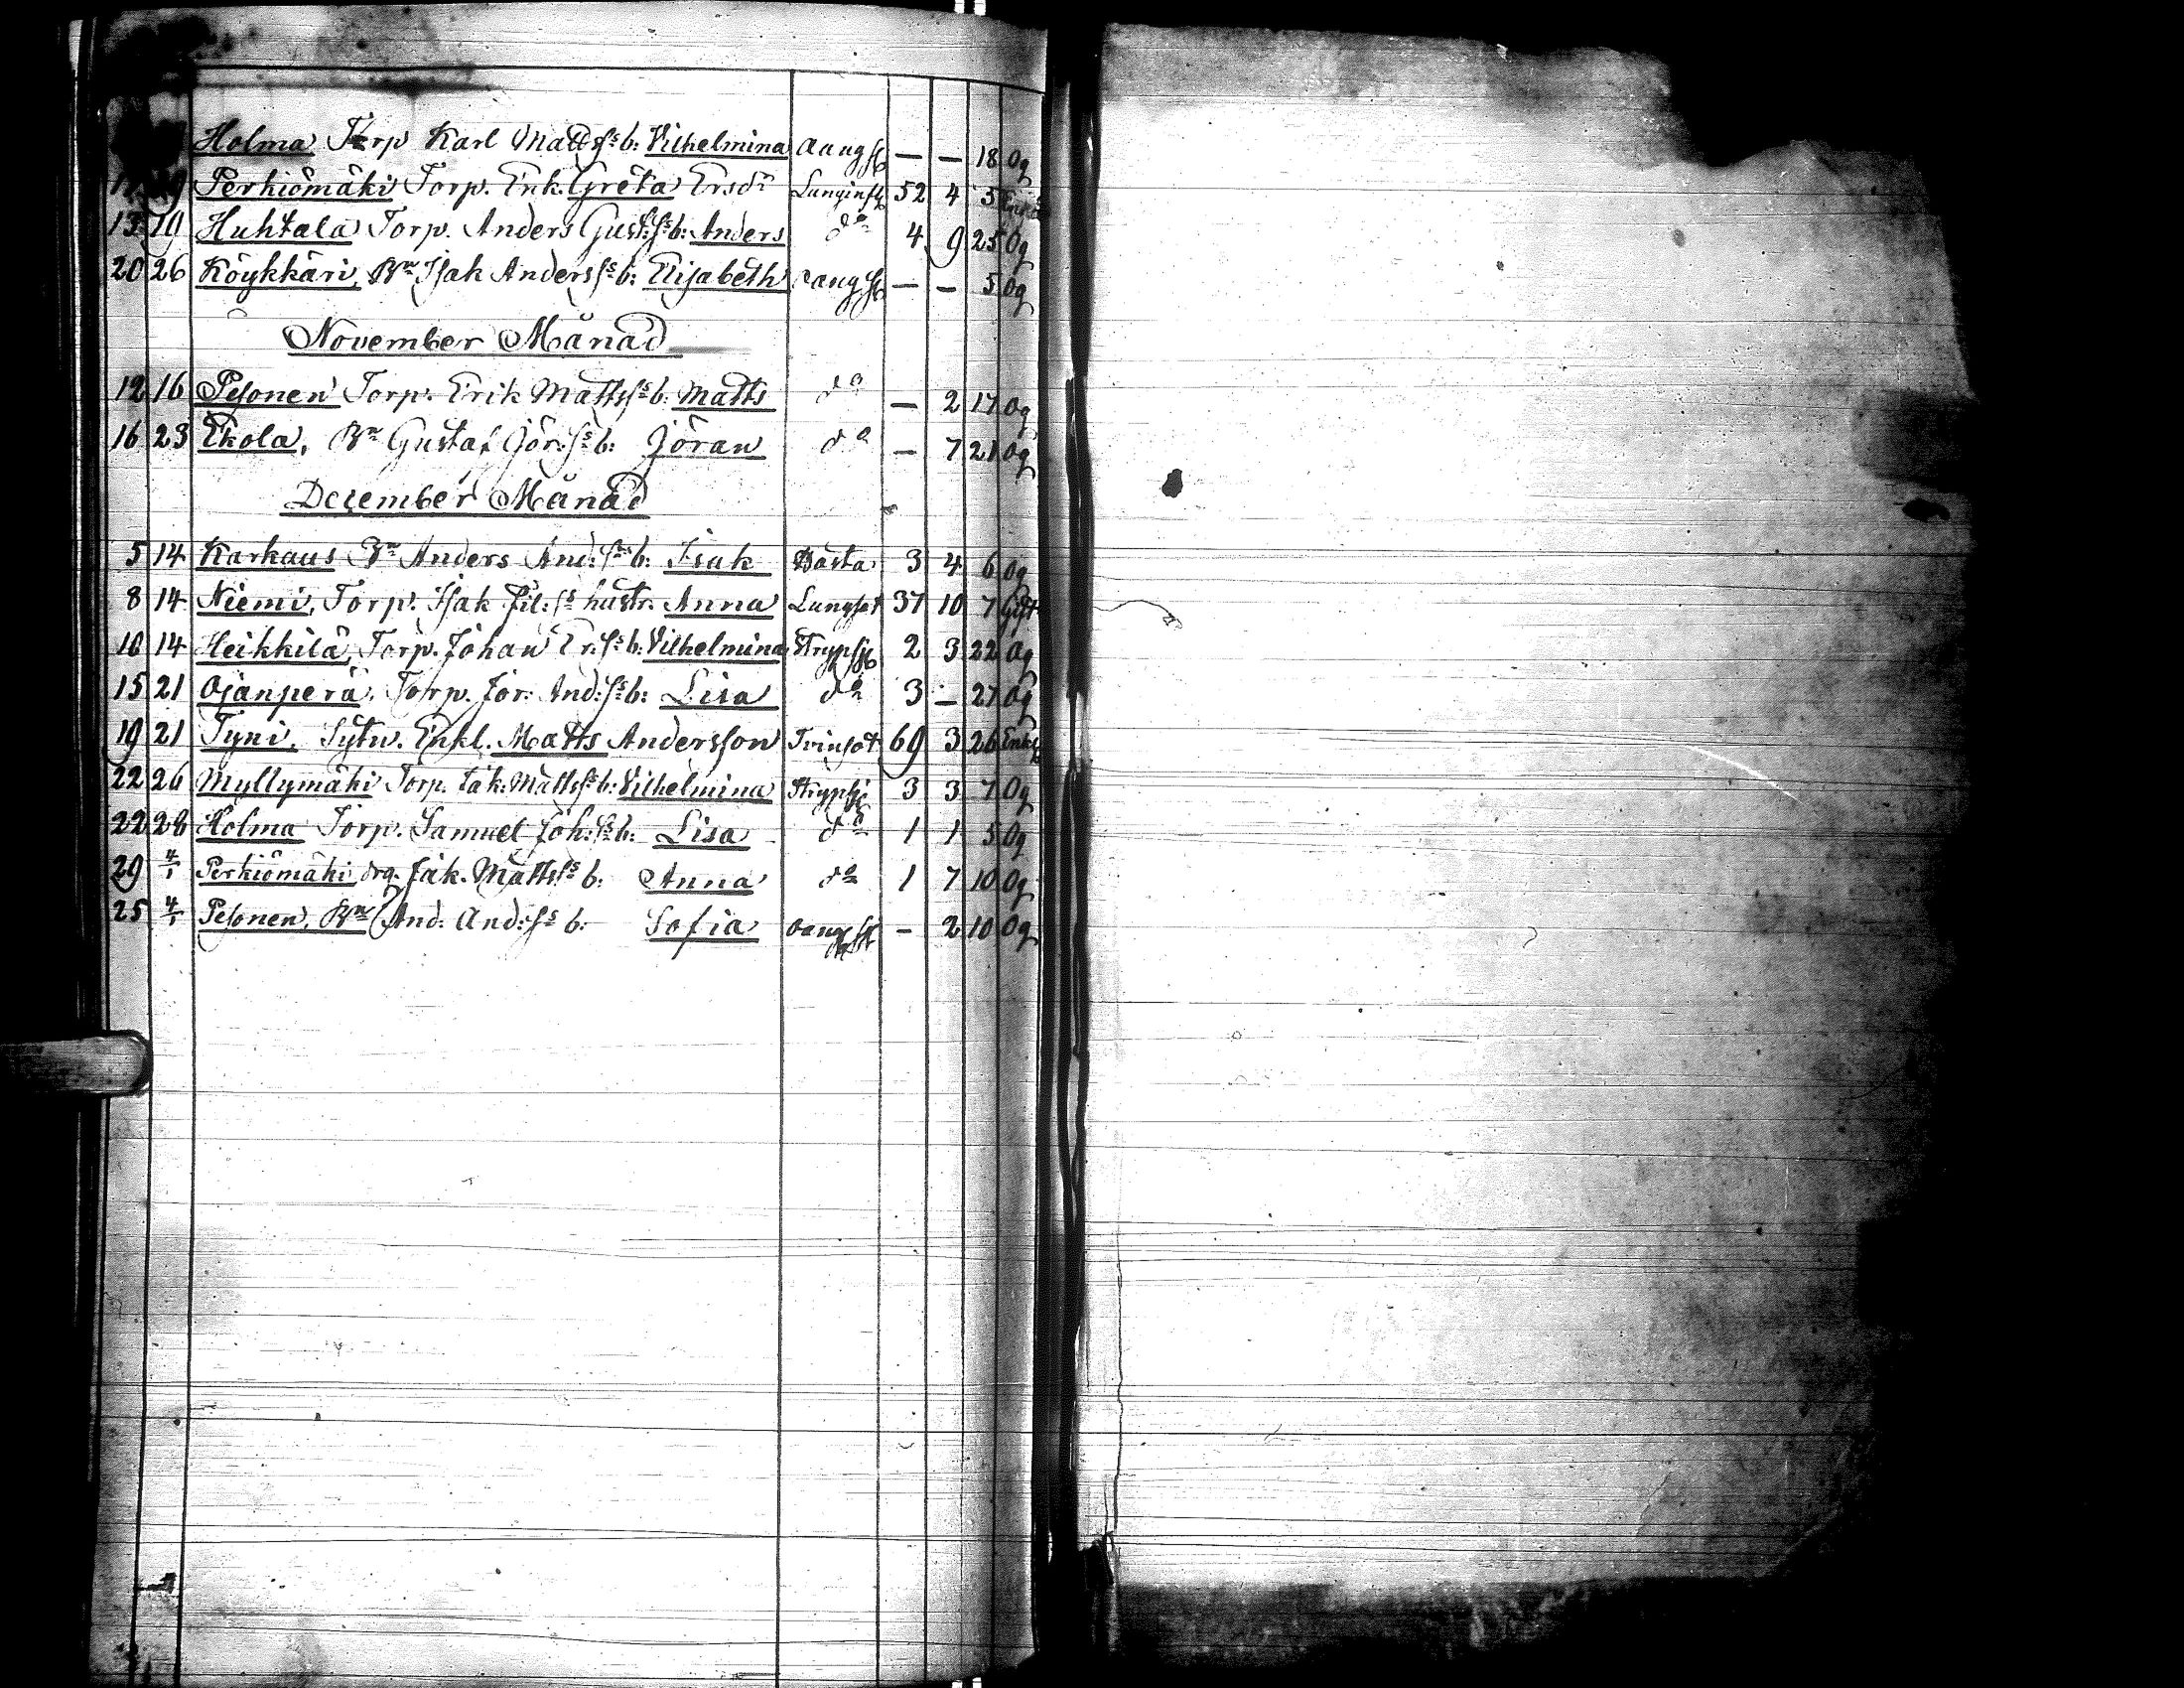 Holma Torp Karl Mattss: b: Vilhelmina Aangsj. — — 18 Og
19 Perkiömäki Torp. Enk. Greta Ersdr Lunginfl. 52 4 5
13 19 Huhtala Torp. Anders Gust:ss b: Anders do 4 9 25 Og
20 26 Köykkäri, Bn Isak Anderss: b: Elisabeth oangsj. — — 5 Og
November Månad
12 16 Pesonen Torp. Erik Mattss: b: Matts do — 2 17 Og
16 23 Ekola, Bn Gustaf Jör:ss b: Jöran do — 7 21 Og
December Månad
5 14 Karhaus Bn Anders And:ss b: Isak Hosta 3 4 6 Og
8 14 Niemi, Torp. Isak Fil:ss hustr. Anna Lungsot 37 10 7 Gift
10 14 Heikkilä, Torp. Johan Er:ss b: Vilhelmina Strypsj. 2 3 22 Og
15 21 Ojanperä, Torp. Jör: And:ss b: Lisa do 3 — 27 Og
19 21 Tyni, Sytn. Enkl. Matts Andersson Tvinsot 69 3 26 Enkl.
22 26 Myllymäki Torp. Jak: Mattss: b: Vilhelmina Strypsj. 3 3 7 Og
22 28 Holma Torp. Samuel Joh:ss b: Lisa do 1 1 5 Og
29 4/1 Perkiömäki drg. Jak. Mattss: b: Anna do 1 7 10 Og
25 4/1 Pesonen, Bn And: And:ss b: Sofia oangsj. — 2 10 Og